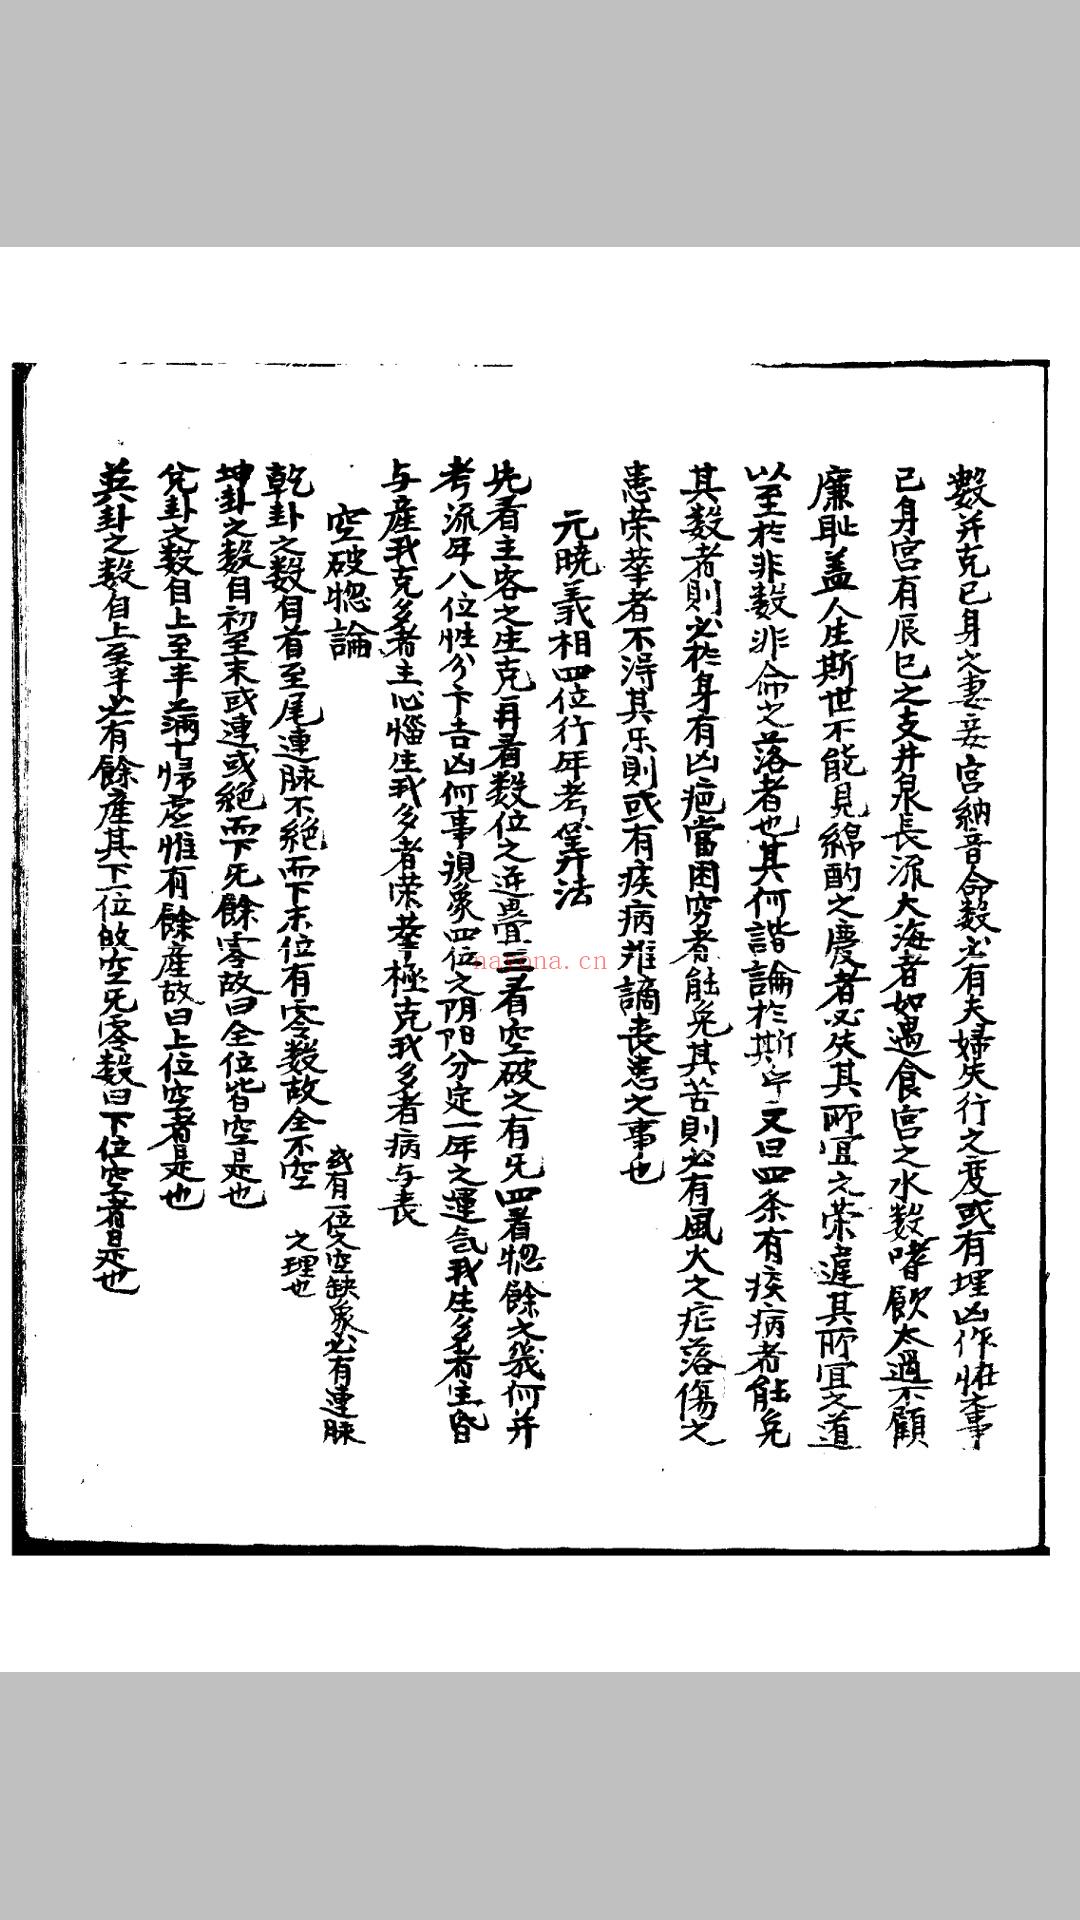 數并克己身之妻妾宮納音命数必有夫婦失行之度或有埋凶作怪之事
己身宮有辰巳之支井泉長流大海者如遇食宮之水数嗜飲太過不顧
廉耻盖人生斯世不能見綿酌之慶者必失其所宜之荣違其所宜之道
以至於非数非命之落者也其何諧論於斯乎又曰四条有疾病者能免
其数者則必於身有凶疤當困穷者能免其苦則必有風火之疟落傷之
患荣華者不淂其乐則或有疾病摧謫丧患之事也
元曉義相四位行年考筭法
先看主客之生克再看数位之迊疊三看空破之有旡四看惣餘之幾何并
考流年八位性分卞吉凶何事視象四位之阴阳分定一年之運气我生多者主昏
与産我克多者主心惱生我多者荣華極克我多者病与丧
空破惣論
或有一位之空缺象必有連脉
之理也
乾卦之数自首至尾連脉不絕而下末位有零数故全不空
坤卦之数自初至末或連或絕而下旡餘零故曰全位皆空是也
兌卦之数自上至半上滿十帰虚惟有餘産故曰上位空者是也
巽卦之数自上至半必有餘産其下位故空旡零数曰下位空者是也
nayona.cn